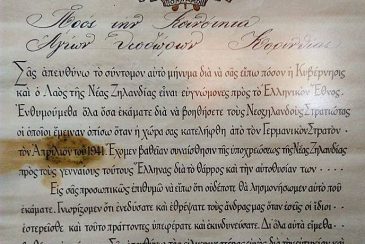 Πρὸς τὴν Κοινότητα
Ἁγίων Θεοδώρων Κορινθίας
Σᾶς ἀπευθύνω τὸ σύντομον αὐτὸ μήνυμα διὰ νὰ σᾶς εἴπω πόσον ἡ Κυβέρνησις
καὶ ὁ Λαὸς τῆς Νέας Ζηλανδίας εἶναι εὐγνώμονες πρὸς τὸ Ἑλληνικὸν Ἔθνος.
Ἐνθυμούμεθα ὅλα ὅσα ἐκάματε διὰ νὰ βοηθήσετε τοὺς Νεοζηλανδοὺς Στρατιώτας
οἱ ὁποῖοι ἔμειναν ὀπίσω ὅταν ἡ χώρα σας κατελήφθη ἀπὸ τὸν Γερμανικὸν Στρατὸν
τὸν Ἀπρίλιον τοῦ 1941. Ἔχομεν βαθεῖαν συναίσθησιν τῆς ὑποχρεώσεως τῆς Νέας Ζηλανδίας
πρὸς τοὺς γενναίους τούτους Ἕλληνας διὰ τὸ θάρρος καὶ τὴν αὐτοθυσίαν των
Εἰς σᾶς προσωπικῶς ἐπιθυμῶ νὰ εἴπω ὅτι οὐδέποτε θὰ λησμονήσωμεν αὐτὸ ποὺ
ἐκάματε. Γνωρίζομεν ὅτι ἐνδύσατε καὶ ἐθρέψατε τοὺς ἄνδρας μας ὅταν ἐσεῖς οἱ ἴδιοι
ἐστερεῖσθε καὶ τοῦτο πράττοντες ὑπεφέρατε καὶ ἐκινδυνεύσατε. Δι' ὅλα αὐτὰ εἴμεθα